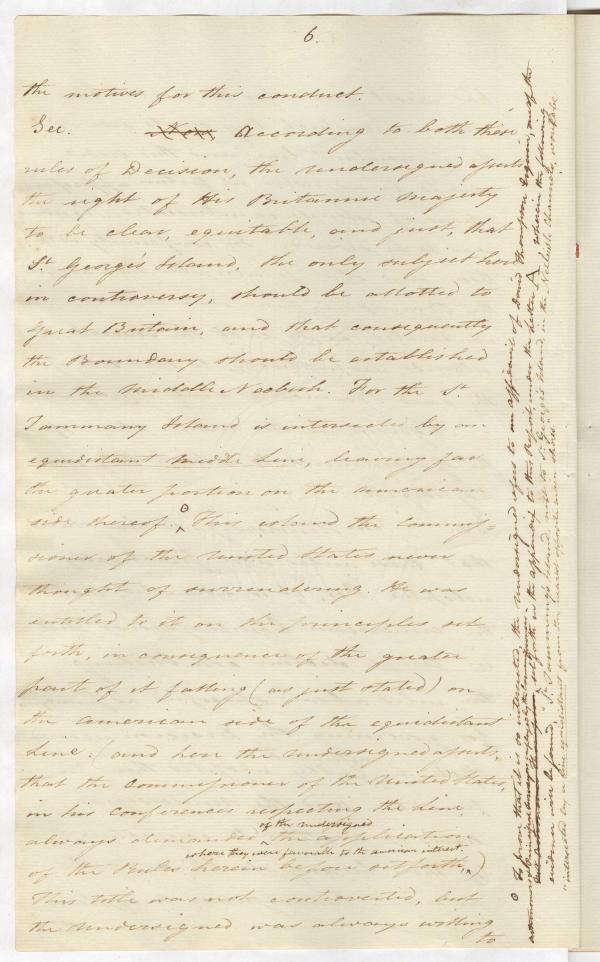 6.
the motives for this conduct.
Sec. Now According to both these
rules of Decision, the undersigned asserts
the right of His Britannic Majesty
to be clear, equitable, and just, that
St. George's Island, the only subject now
in controversy, should be allotted to
Great Britain, and that consequently
the Boundary should be established
in the middle Neebish. For the St.
Tammany Island is intersected by an
equidistant middle Line, leaving far
the greater portion on the American
side thereof. o ^ This island the Commis=
sioner of the United States never
thought of surrendering. He was
entitled to it on the principles set
forth, in consequence of the greater
part of it falling (as just stated) on
the American side of the equidistant
Line. (and here the undersigned asserts,
that the Commissioner of the United States,
in his conferences respecting the Line,
of the undersigned
always demanded ^ the application
where they were favorable to the american interest.
of the Rules herein before setforth, ^)
This title was not controverted, but
the undersigned was always willing
to
o To prove that it is so intersected, the undersigned refers to an affidavit of david thompson Esquire, one of the
set forth in the appendix to this Report under the letter A wherein the following
evidence will be found, "St. Tammany's Island, next to St. George's Island, in the Neebish Channels, would be
"intersected by a line equidistant from the nearest opposite main shores"